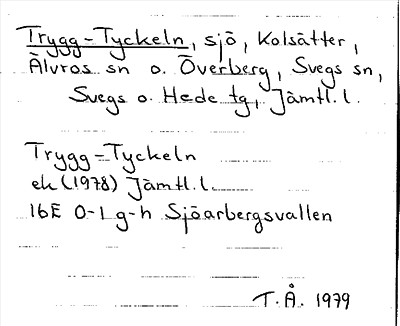 Trygg-Tyckeln, sjö, Kolsätter,
Älvros sn o. Överberg, Svegs sn,
Svegs o. Hede tg, Jämtl. l.
Trygg-Tyckeln
ek (1978) Jämtl. l.
16E 0-1 g-h Sjöarbergsvallen
T. Å. 1979